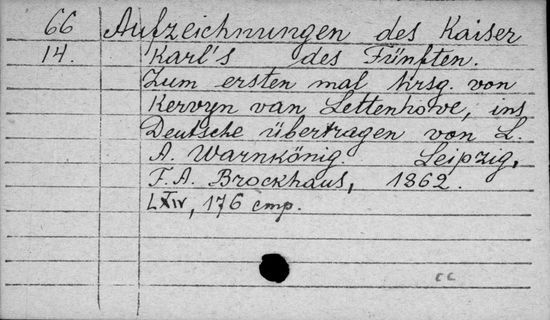 66 Aufzeichnungen des Kaiser
14. Karl's des Fünften.
Zum ersten mal hrsg. von
Kervyn van Lettenhowe, ins
Deutsche übertragen von L.
A. Warnkönig. Leipzig,
F.A. Brockhaus, 1862.
LXIV, 176 cmp.
cc